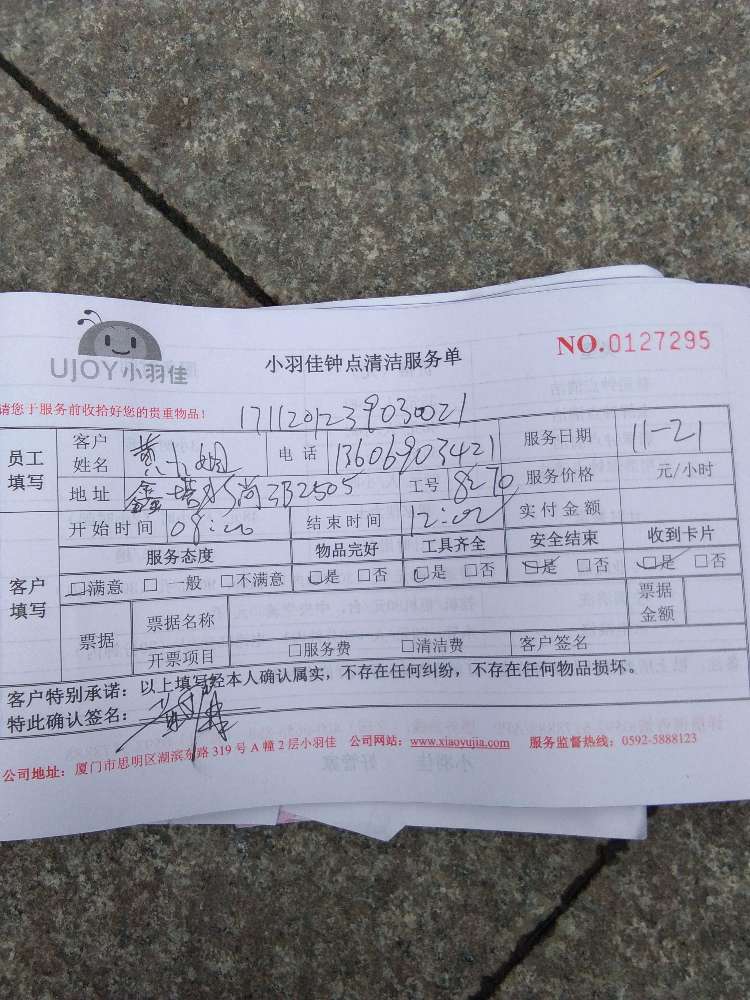 UJOY小羽佳
小羽佳钟点清洁服务单
NO.0127295
请您于服务前收拾好您的贵重物品！
1711201239030021
员工填写 客户姓名 黄小姐 电话 13606903421 服务日期 11-21
地址 鑫塔水尚 2B2505 工号 8270 服务价格 元/小时
开始时间 08:00 结束时间 12:00 实付金额
客户填写 服务态度 物品完好 工具齐全 安全结束 收到卡片
□满意 □一般 □不满意 □是 □否 □是 □否 □是 □否 □是 □否
票据 票据名称 票据金额
开票项目 □服务费 □清洁费 客户签名
客户特别承诺：以上填写经本人确认属实，不存在任何纠纷，不存在任何物品损坏。
特此确认签名：
公司地址：厦门市思明区湖滨东路 319 号 A 幢 2 层小羽佳 公司网站：www.xiaoyujia.com 服务监督热线：0592-5888123